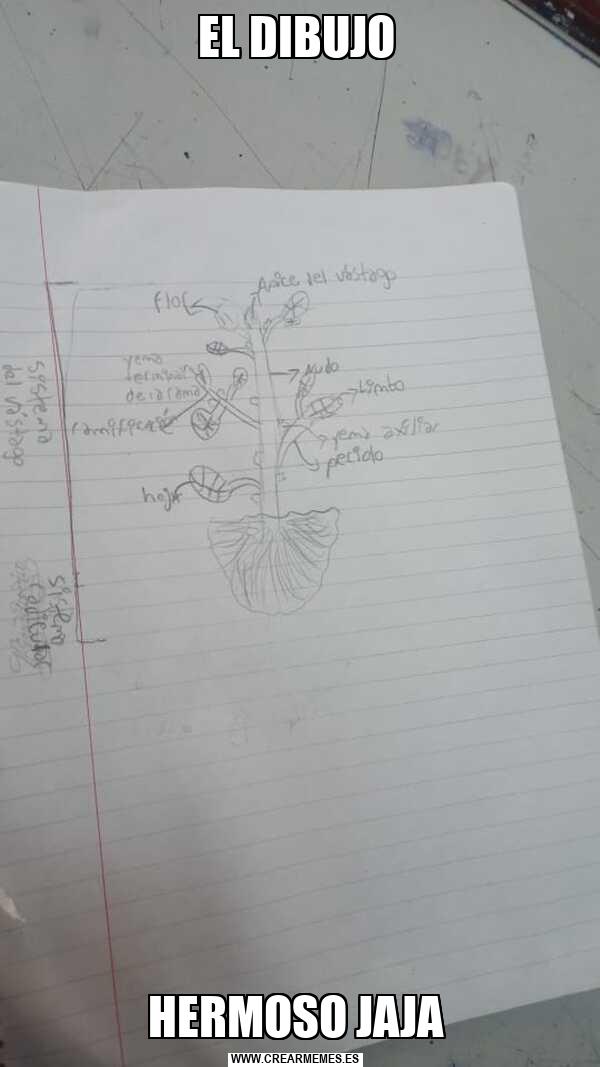 EL DIBUJO
Apice del vástago
flor
nudo
yema
terminal
de la rama
Limbo
ramificació
yema axiliar
peciolo
hoja
Sistema
del vástago
Sistema
radicular
HERMOSO JAJA
WWW.CREARMEMES.ES